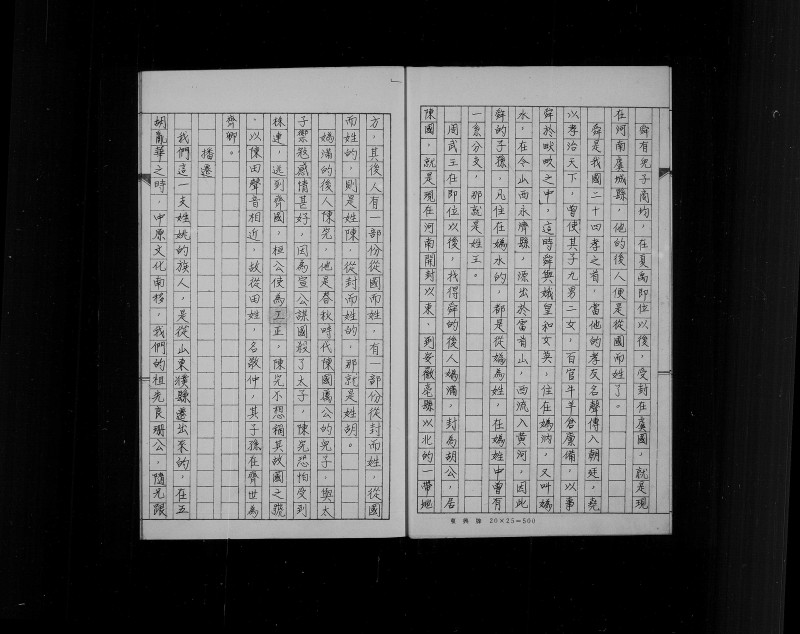 舜有兒子商均，在夏禹即位以後，受封在虞國，就是現
在河南虞城縣，他的後人便是從國而姓了。
舜是我國二十四孝之首，當他的孝友名聲傳入朝廷，堯
以孝治天下，曾使其子九男二女，百官牛羊倉廩備，以事
舜於畎畝之中，這時舜與娥皇和女英，住在媯汭，又叫媯
水，在今山西永濟縣，源出於首山，西流入黃河，因此
舜的子孫，凡住在媯水的，都是從媯為姓，在媯姓中曾有
一系分支，那就是姓王。
周武王在即位以後，找得舜的後人媯滿，封為胡公，居
陳國，就是現在河南開封以東，到安徽亳縣以北的一帶地
方，其後人有一部份從國而姓，有一部份從封而姓，從國
而姓的，則是姓陳，從封而姓的，那就是姓胡。
媯滿的後人陳完，他是春秋時代陳國厲公的兒子，與太
子禦寇感情甚好，因為宣公謀國殺了太子，陳完恐怕受到
株連，逃到齊國，桓公使為工正，陳完不想稱其故國之號
，以陳田聲音相近，故從田姓，名敬仲，其子孫在齊世為
齊卿。
播遷
我們這一支姓姚的族人，是從山東濮縣遷出來的，在五
胡亂華之時，中原文化南移，我們的祖先良珊公，隨先眼
東興牌 20×25=500